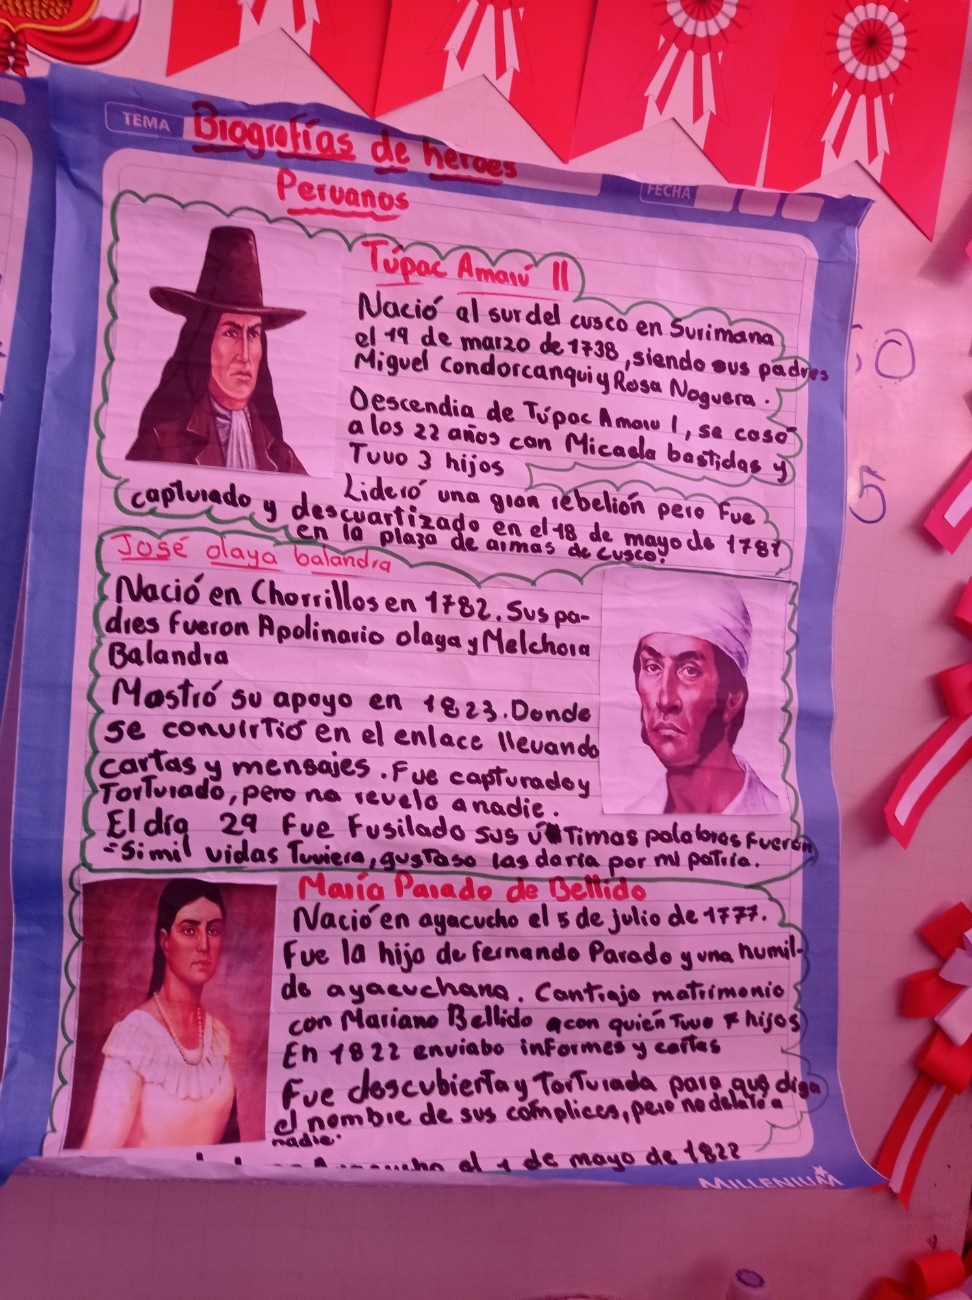 TEMA
Biografías de héroes
FECHA
Peruanos
Túpac Amarú II
Nació al sur del cusco en Surimana
el 19 de marzo de 1738, siendo sus padres
Miguel Condorcanqui y Rosa Noguera.
Descendia de Túpac Amaru I, se casó
a los 22 años con Micaela bastidas y
Tuvo 3 hijos
Lideró una gran rebelión pero Fue
capturado y descuartizado en el 18 de mayo de 1781
en la plaza de armas de cusco.
José olaya balandra
Nació en Chorrillos en 1782. Sus pa-
dres fueron Apolinario olaya y Melchora
Balandra
Mostró su apoyo en 1823. Donde
se convirtió en el enlace llevando
cartas y mensajes. Fue capturado y
Torturado, pero no revelo a nadie.
El día 29 Fue Fusilado sus últimas palabras Fueron
"Si mil vidas Tuviera, gustoso las daría por mi patria.
María Parado de Bellido
Nació en ayacucho el 5 de julio de 1777.
Fue la hija de Fernando Parado y una humil-
de ayacuchana. Contrajo matrimonio
con Mariano Bellido con quién Tuvo 7 hijos
En 1822 enviabo informes y cartas
Fue descubierta y Torturada para que diga
el nombre de sus complices, pero no delató a
nadie.
el 1 de mayo de 1822
MILLENIUM
50
5